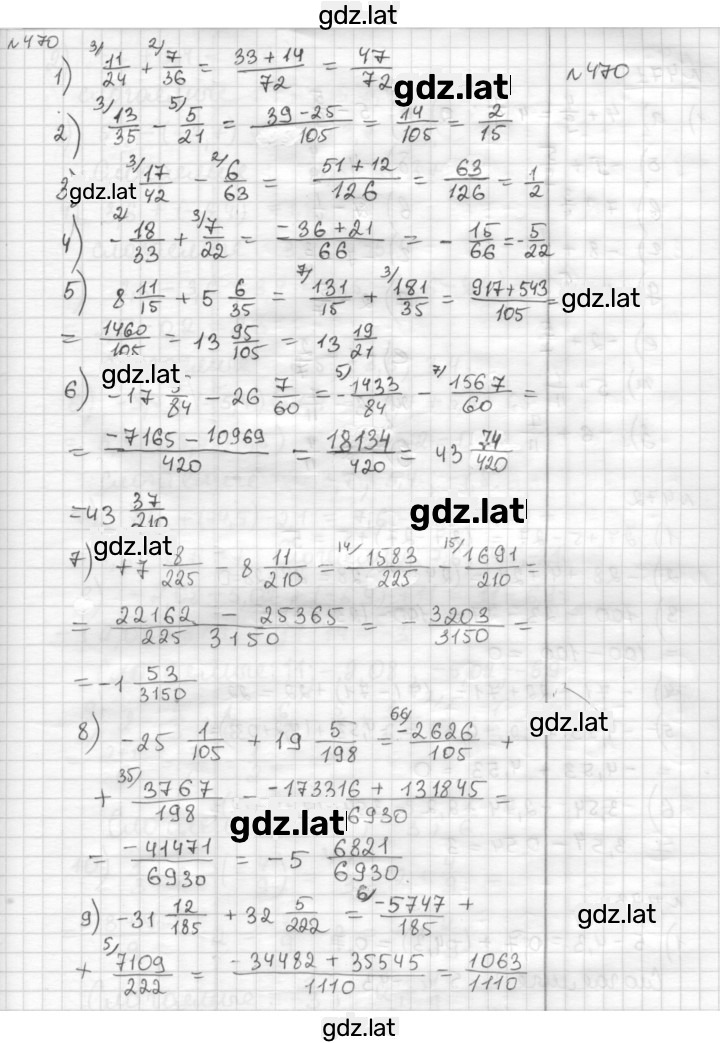 gdz.lat
№470
1) 3/ 11/24 + 2/ 7/36 = (33+14)/72 = 47/72
gdz.lat
№470
2) 3/ 13/35 - 5/ 5/21 = (39-25)/105 = 14/105 = 2/15
3/ 17/42 - 2/ 6/63 = (51+12)/126 = 63/126 = 1/2
gdz.lat
4) - 2/ 18/33 + 3/ 7/22 = (-36+21)/66 = - 15/66 = - 5/22
5) 8 11/15 + 5 6/35 = 7/ 131/15 + 3/ 181/35 = (917+543)/105 =
gdz.lat
= 1460/105 = 13 95/105 = 13 19/21
gdz.lat
6) -17 /84 - 26 7/60 = - 5/ 1433/84 - 7/ 1567/60 =
= (-7165-10969)/420 = 18134/420 = 43 74/420
= 43 37/210
gdz.lat
gdz.lat
7) +7 8/225 - 8 11/210 = 14/ 1583/225 - 15/ 1691/210 =
= (22162 - 25365)/(225 3150) = - 3203/3150 =
= -1 53/3150
8) -25 1/105 + 19 5/198 = 66/ -2626/105 +
gdz.lat
+ 35/ 3767/198 - (-173316+131845)/6930 =
gdz.lat
= -41471/6930 = -5 6821/6930
9) -31 12/185 + 32 5/222 = 6/ -5747/185 +
gdz.lat
+ 5/ 7109/222 = (-34482+35545)/1110 = 1063/1110
gdz.lat